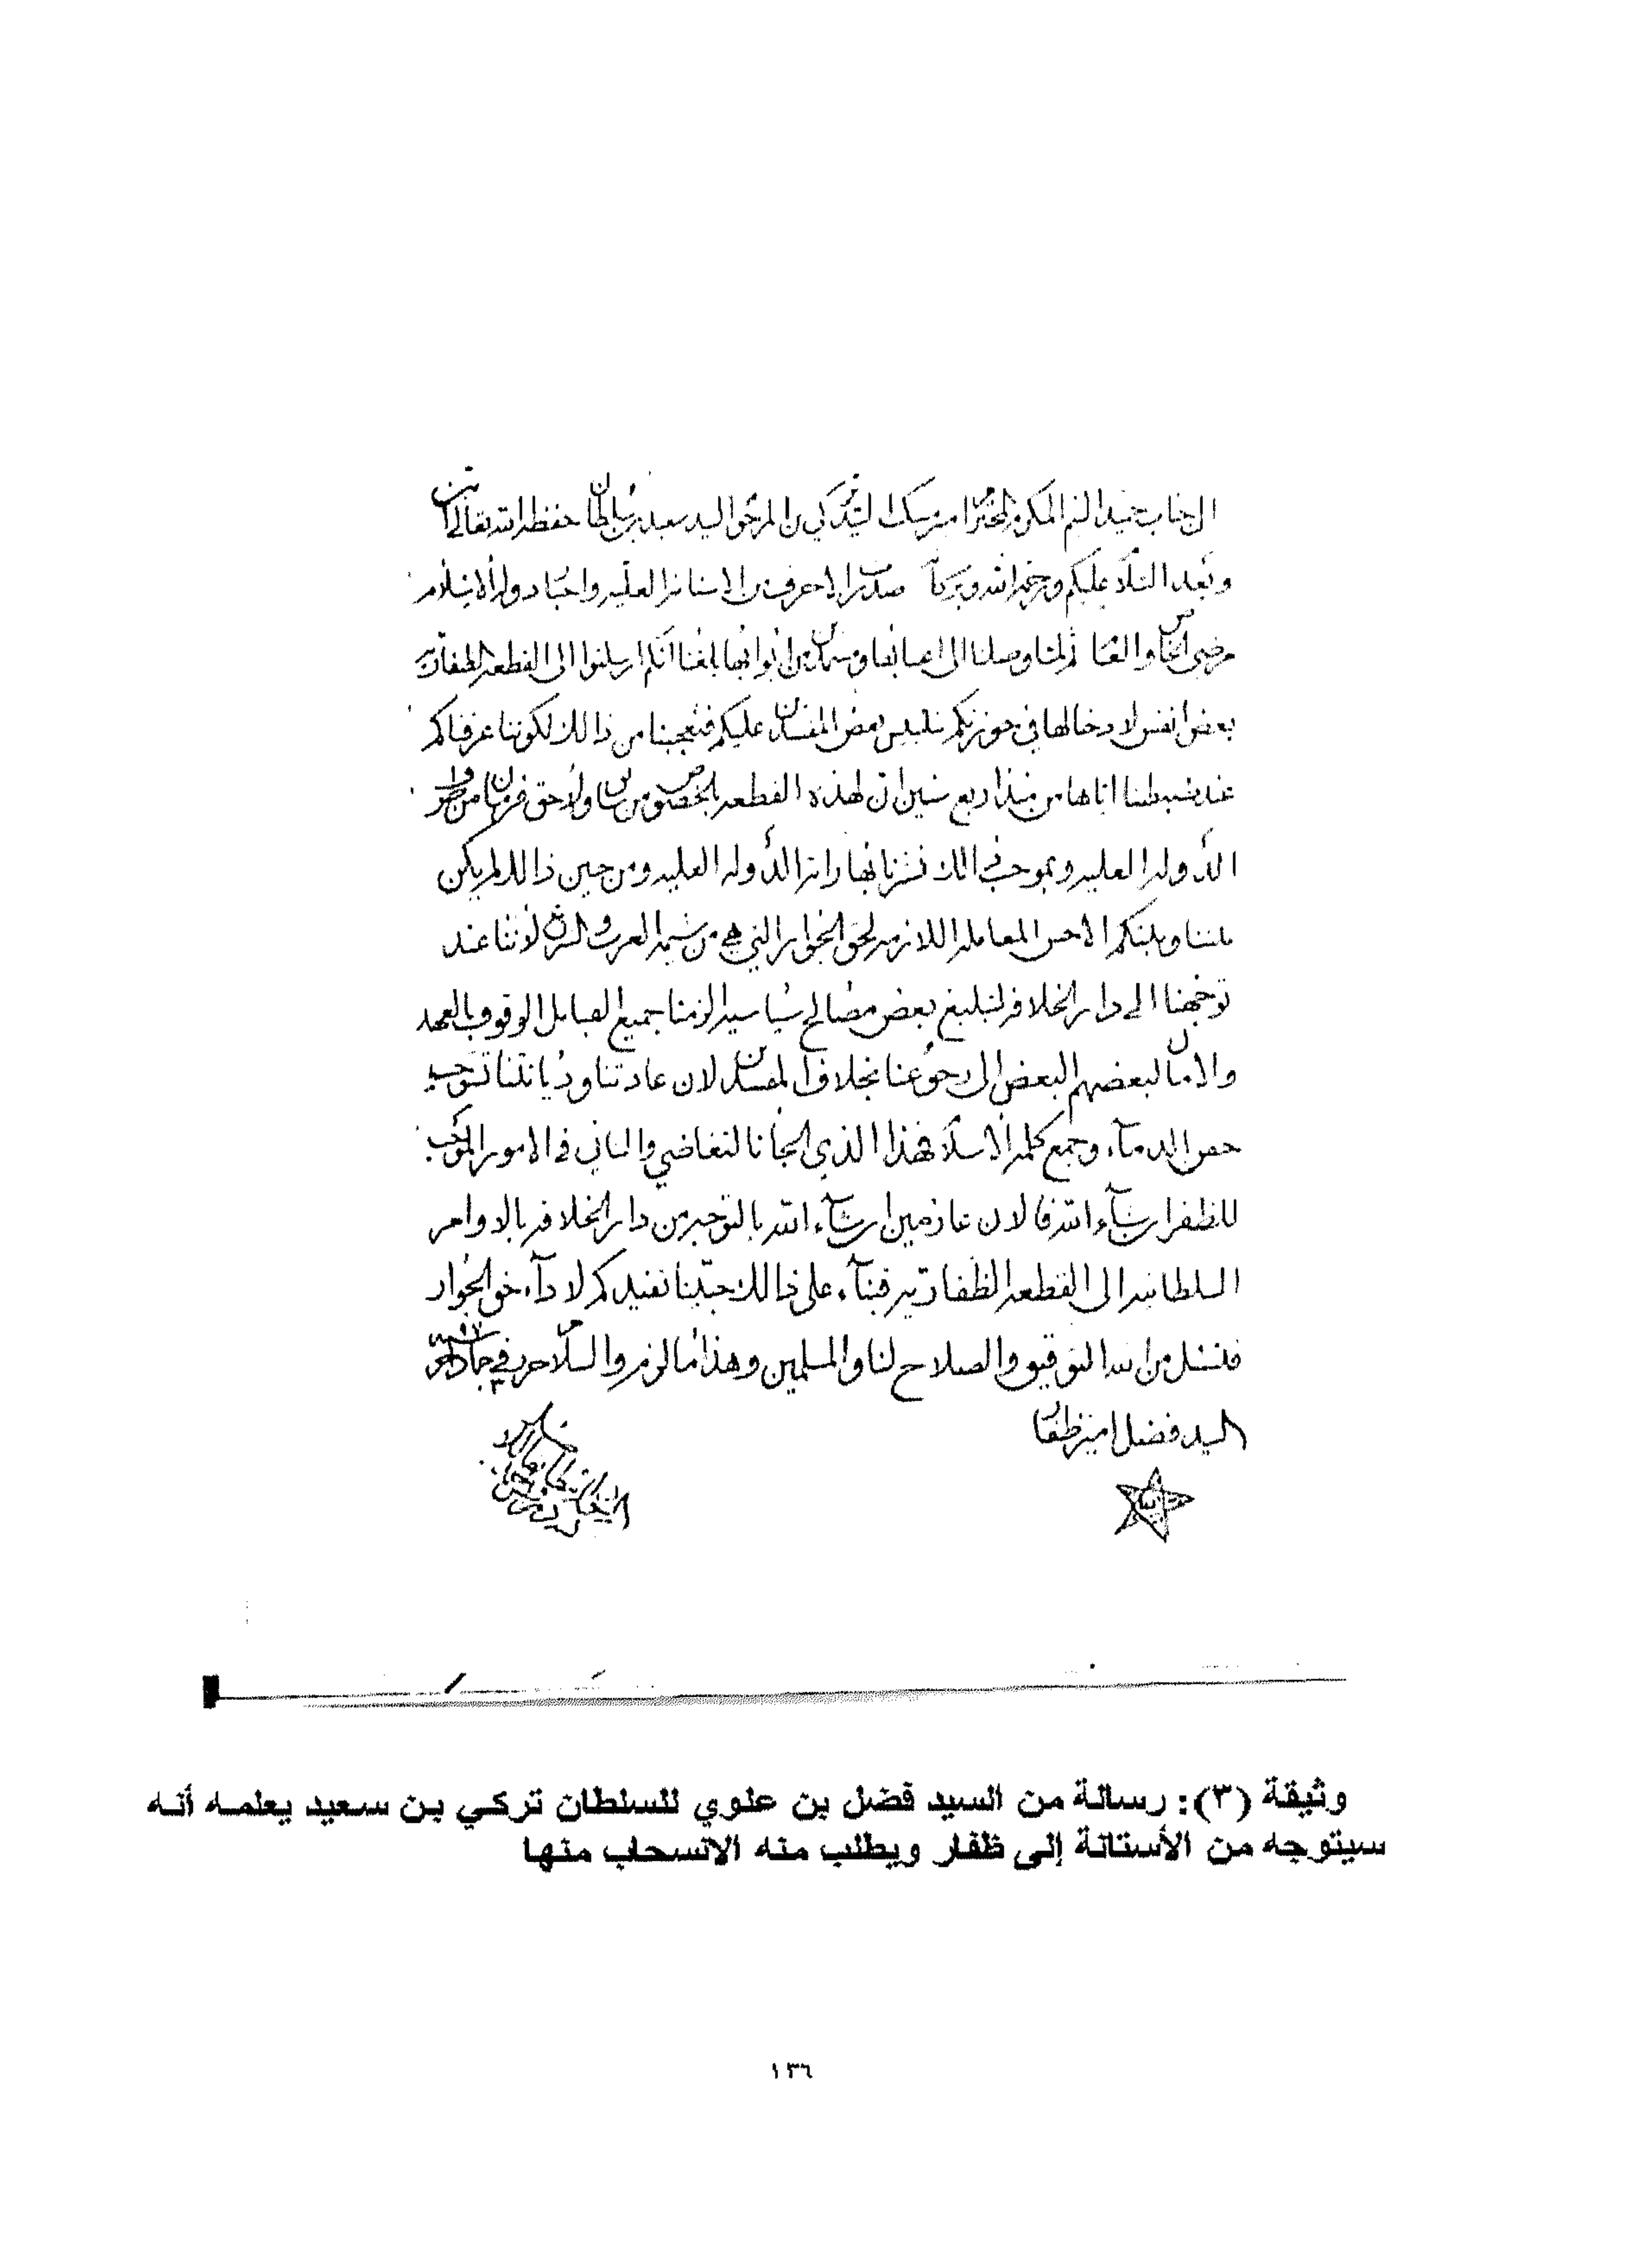 الى جناب حميد الشيم المكرم المحترم امير مسكت السيد تركي بن المرحوم السيد سعيد بن سلطان حفظه الله تعالى
وبعد السلام عليكم ورحمة الله وبركاته صدرت الاحرف من الاستانة العلية واخبار دولة الاسلام
مرضي الخاص والعام ثم لما وصلنا الى بلغنا انكم ارسلتوا الى القطعه الظفارية
بعض انفس لادخالها في حوزتكم بتلبيس بعض المفسدين عليكم فتعجبنا من ذالك لكوننا عرفناكم
عند ضبطنا اياها من منذ اربع سنين ان لهذه القطعه بالخصوص من سابق ولاحق فرمان من
الدولة العليه وبموجب ذالك نشرنا بها راية الدوله العليه ومن حين ذالك لم يكن
بيننا وبينكم الا حسن المعامله اللازمه لحق الجوار التي هي من شيمة العرب والشرف لاننا عند
توجهنا الى دار الخلافه لتبليغ بعض مصالح سياسيه الزمنا جميع القبايل الوقوف بالعهد
والامان لبعضهم البعض الى رجوعنا بخلاف المفسدين لان عادتنا وديانتنا توجب
حقن الدماء وجمع كلمة الاسلام فهذا الذي الجأنا التغاضي والتأني في الامور الموجب
للظفر ان شاء الله فالان عازمين ان شاء الله بالتوجه من دار الخلافه بالاوامر
السلطانيه الى القطعه الظفاريه فبناء على ذالك حبينا نفيدكم لاداء حق الجوار
فنسئل من الله التوفيق والصلاح لنا والمسلمين وهذا ما لزم والسلام حرر في جماد
السيد فضل امير ظفار
وثيقة (٣): رسالة من السيد فضل بن علوي للسلطان تركي بن سعيد يعلمه أنه
سيتوجه من الأستانة إلى ظفار ويطلب منه الانسحاب منها
١٣٦